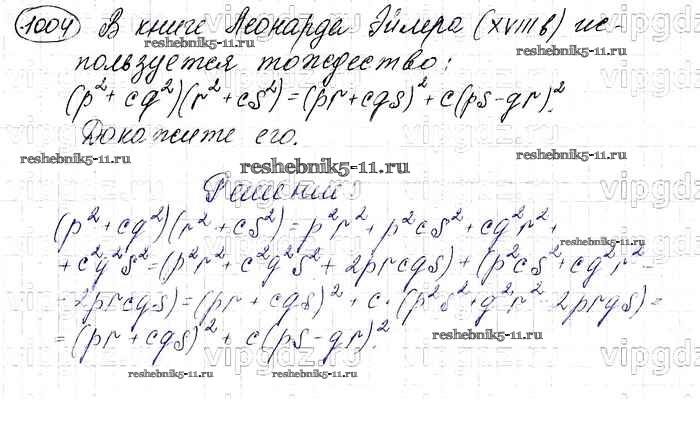 1004 В книге Леонарда Эйлера (XVIII в) ис-
пользуется тождество:
(p²+cq²)(r²+cs²)=(pr+cqs)²+c(ps-qr)².
Докажите его.
Решение
(p²+cq²)(r²+cs²)=p²r²+p²cs²+cq²r²+
+c²q²s²=(p²r²+c²q²s²+2prcqs)+(p²cs²+cq²r²-
-2prcqs)=(pr+cqs)²+c·(p²s²+q²r²-2prqs)=
=(pr+cqs)²+c(ps-qr)².
reshebnik5-11.ru
reshebnik5-11.ru
reshebnik5-11.ru
reshebnik5-11.ru
reshebnik5-11.ru
reshebnik5-11.ru
reshebnik5-11.ru
reshebnik5-11.ru
vipgdz.ru
vipgdz.ru
vipgdz.ru
vipgdz.ru